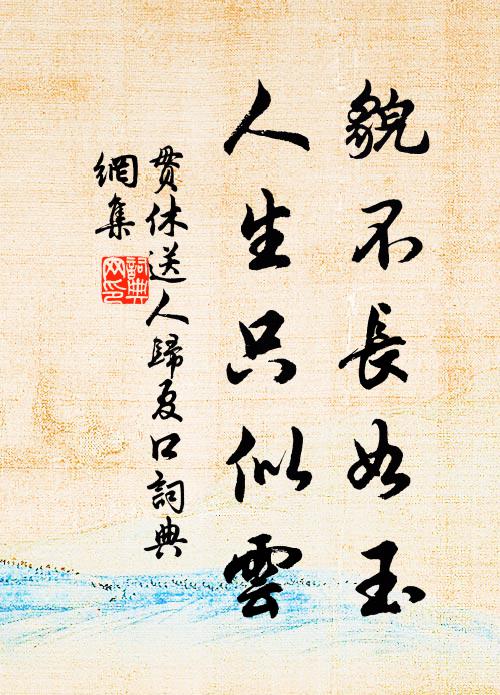 貌不長如玉
人生只似雲
貫休送人歸夏口詞典
網集
詞典
网印